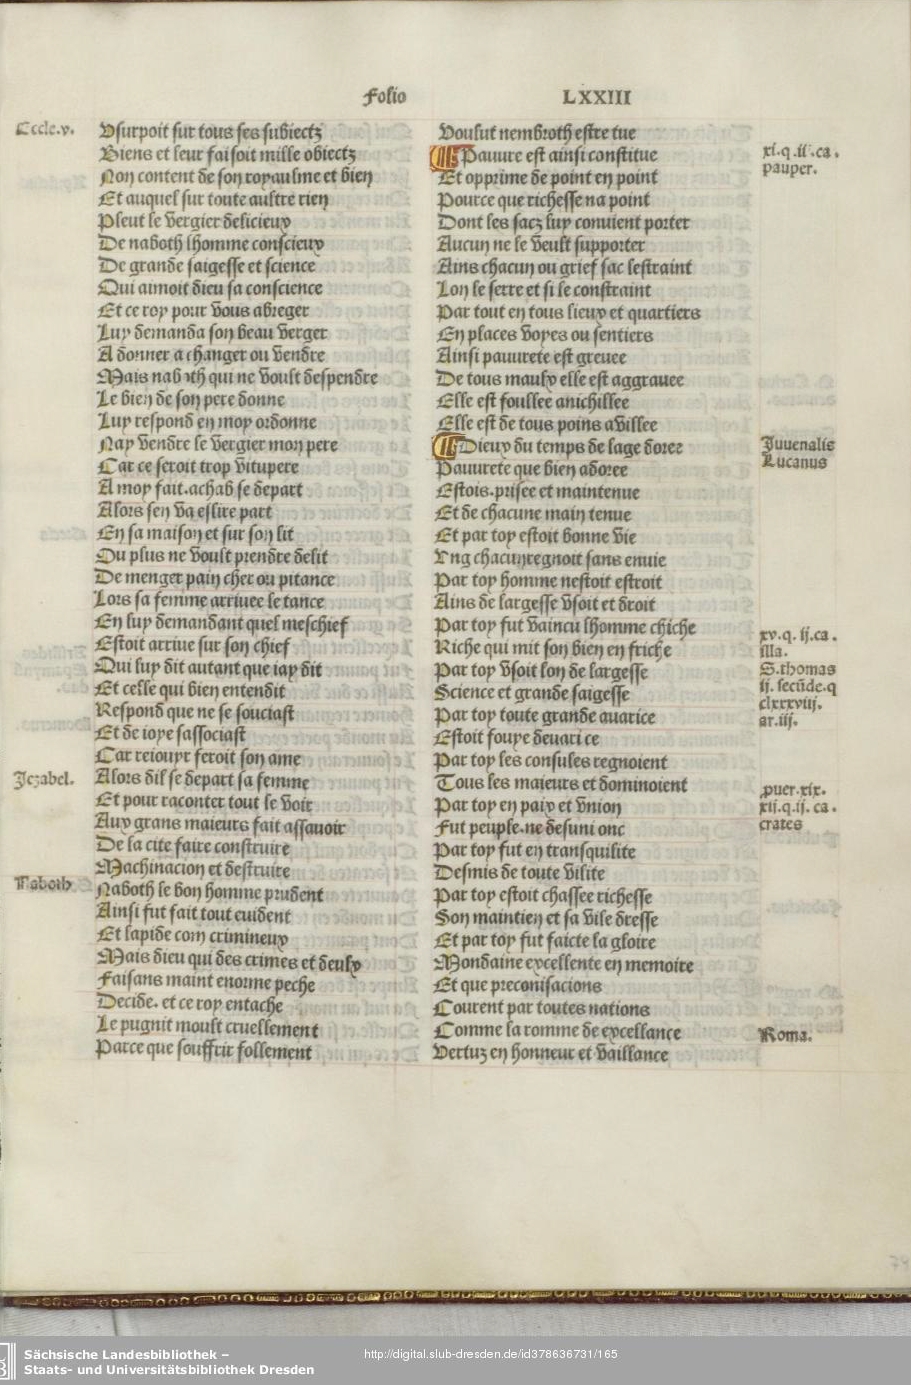 Folio LXXIII
Eccle.v.
Usurpoit sur tous ses subiectz
Biens et leur faisoit mille obiectz
Non content de son royaulme et bien
Et auquel sur toute aultre rien
Pleut le vergier delicieux
De naboth lhomme conscieux
De grande saigesse et science
Qui aimoit dieu sa conscience
Et ce roy pour vous abreger
Luy demanda son beau verger
A donner a changer ou vendre
Mais naboth qui ne voult despendre
Le bien de son pere donne
Luy respond en moy ordonne
Nay vendre le vergier mon pere
Car ce seroit trop vitupere
A moy fait.achab se depart
Alors sen va eslire part
En sa maison et sur son lit
Ou plus ne voult prendre delit
De menger pain cher ou pitance
Lors sa femme arrivee le tance
En luy demandant quel meschief
Estoit arrive sur son chief
Qui luy dit autant que iay dit
Et celle qui bien entendit
Respond que ne se souciast
Et de ioye sassociast
Car reiouyr feroit son ame
Jezabel.
Alors dil se depart sa femme
Et pour raconter tout le voir
Aux grans maieurs fait assavoir
De la cite faire construire
Machinacion et destruire
Naboth
Naboth le bon homme prudent
Ainsi fut fait tout euident
Et lapide com crimineux
Mais dieu qui des crimes et deulx
Faisans maint enorme peche
Decide. et ce roy entache
Le pugnit moult cruellement
Parce que souffrir follement
Voulut nembroth estre tue
Pauure est ainsi constitue
xi.q.ii.ca.
pauper.
Et opprime de point en point
Pource que richesse na point
Dont les sacz luy conuient porter
Aucun ne le veult supporter
Ains chacun ou grief sac lestraint
Lon le serre et si le constraint
Par tout en tous lieux et quartiers
En places voyes ou sentiers
Ainsi pauurete est greuee
De tous maulx elle est aggrauee
Elle est foullee anichillee
Elle est de tous poins avillee
Dieux du temps de lage doree
Juuenalis
Lucanus
Pauurete que bien adoree
Estois.prisee et maintenue
Et de chacune main tenue
Et par toy estoit bonne vie
Vng chacun regnoit sans enuie
Par toy homme nestoit estroit
Ains de largesse vsoit et droit
Par toy fut vaincu lhomme chiche
Riche qui mit son bien en friche
xv.q. ij.ca.
illa.
Par toy vsoit lon de largesse
Science et grande saigesse
S.thomas
ij. secūde.q
clxxxviij.
ar.iij.
Par toy toute grande auarice
Estoit fouye deuarice
Par toy les consules regnoient
Tous les maieurs et dominoient
Par toy en paix et vnion
puer.xix.
xij.q.ij. ca.
crates
Fut peuple.ne desuni onc
Par toy fut en transquilite
Desmis de toute vilite
Par toy estoit chassee richesse
Son maintien et sa vile dresse
Et par toy fut faicte la gloire
Mondaine excellente en memoire
Et que preconisacions
Courent par toutes nations
Comme la romme de excellance
Roma.
Vertuz en honneur et vaillance
Sächsische Landesbibliothek –
Staats- und Universitätsbibliothek Dresden
http://digital.slub-dresden.de/id378636731/165